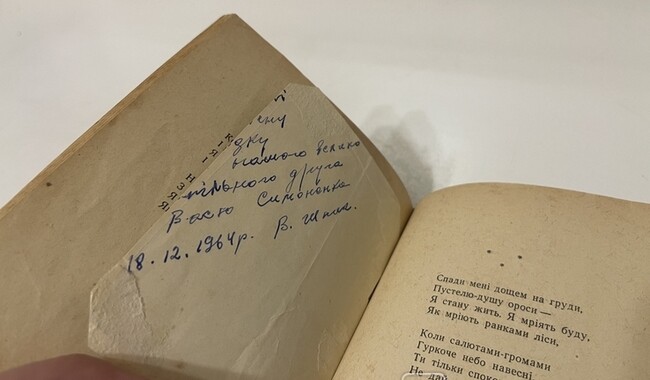 ену
дку
нашого велико
тнього друга
Васю Симоненка
18.12.1964р. В. Шпак.
* * *
Спади мені дощем на груди,
Пустелю-душу ороси —
Я стану жить. Я мріять буду,
Як мріють ранками ліси,
Коли салютами-громами
Гуркоче небо навесні
Ти тільки
Не дай